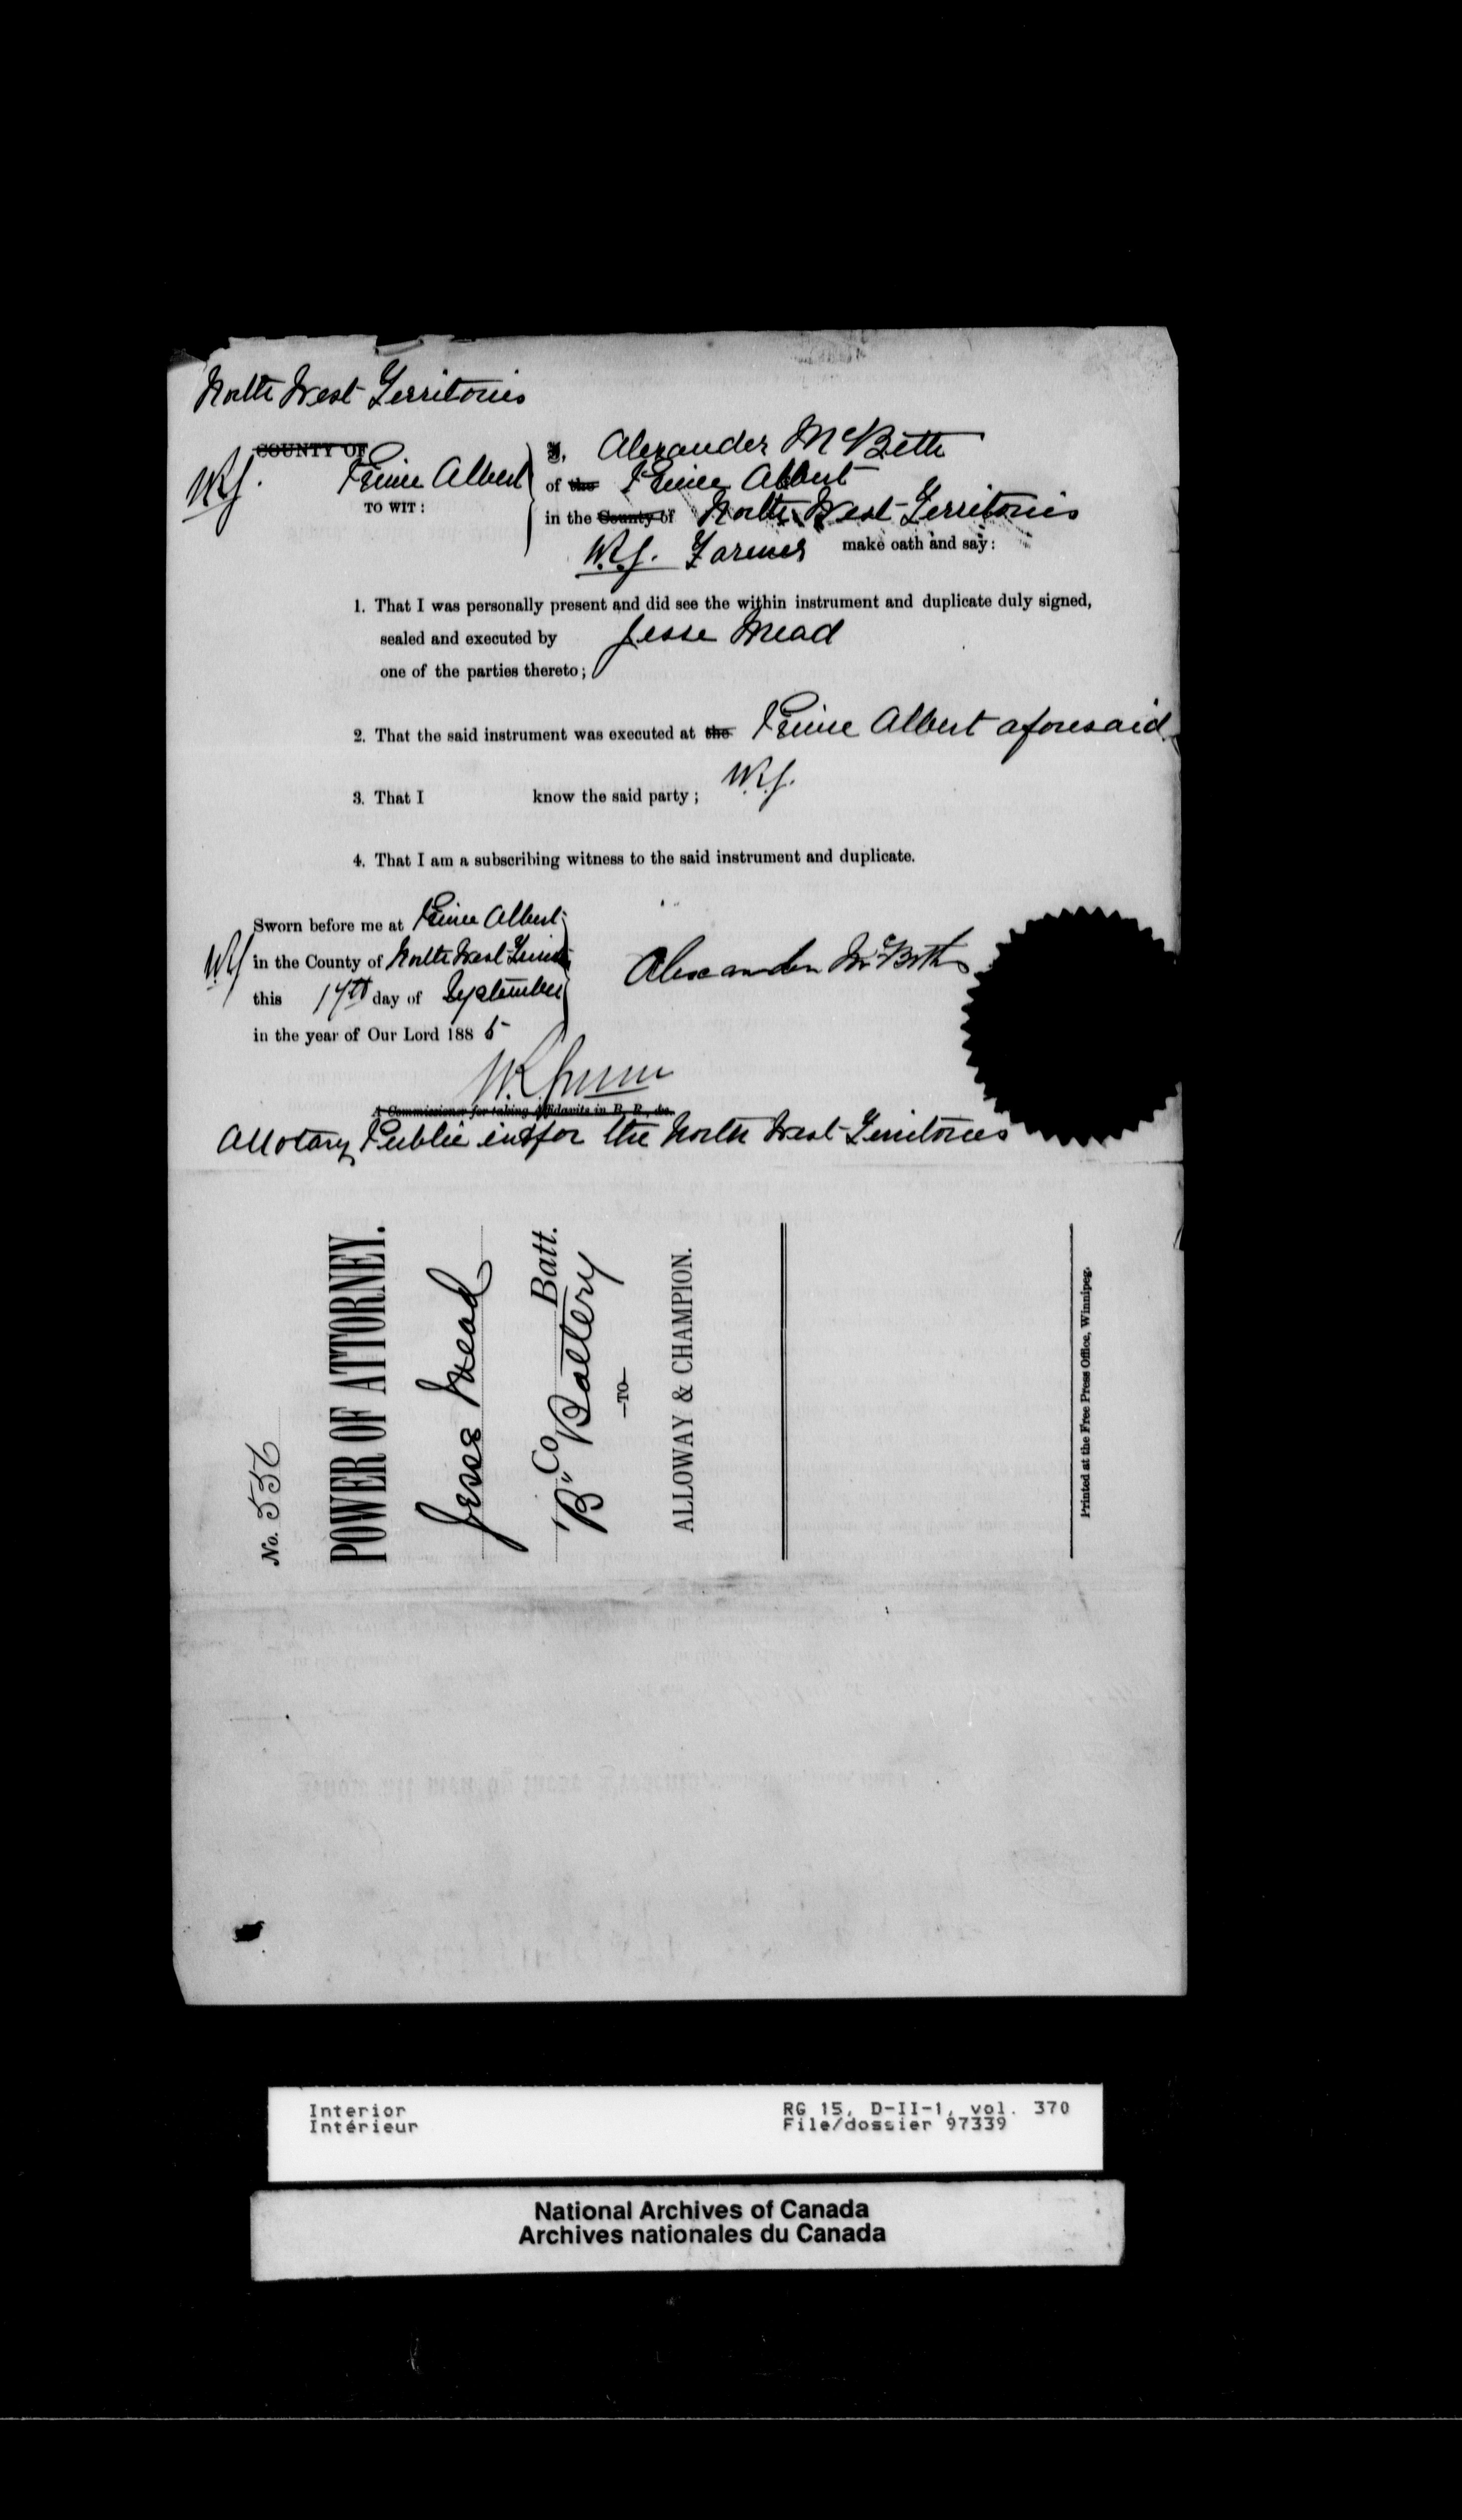 North West Territories
COUNTY OF
Prince Albert
TO WIT:
W.R.G.
I, Alexander McBeth
of the Prince Albert
in the County of North West Territories
W.R.G. Farmer make oath and say:
1. That I was personally present and did see the within instrument and duplicate duly signed,
sealed and executed by Jesse Mead
one of the parties thereto;
2. That the said instrument was executed at the Prince Albert aforesaid
W.R.G.
3. That I know the said party;
4. That I am a subscribing witness to the said instrument and duplicate.
Sworn before me at Prince Albert
W.R.G. in the County of North West
this 17th day of September
in the year of Our Lord 1885
Alexander McBeth
A Commissioner for taking Affidavits in B. R., &c.
A Notary Public in & for the North West Territories
No. 556
POWER OF ATTORNEY.
Jesse Mead
"B" Co Battery Batt.
—TO—
ALLOWAY & CHAMPION.
Printed at the Free Press Office, Winnipeg.
Interior
Intérieur
RG 15, D-II-1, vol. 370
File/dossier 97339
National Archives of Canada
Archives nationales du Canada